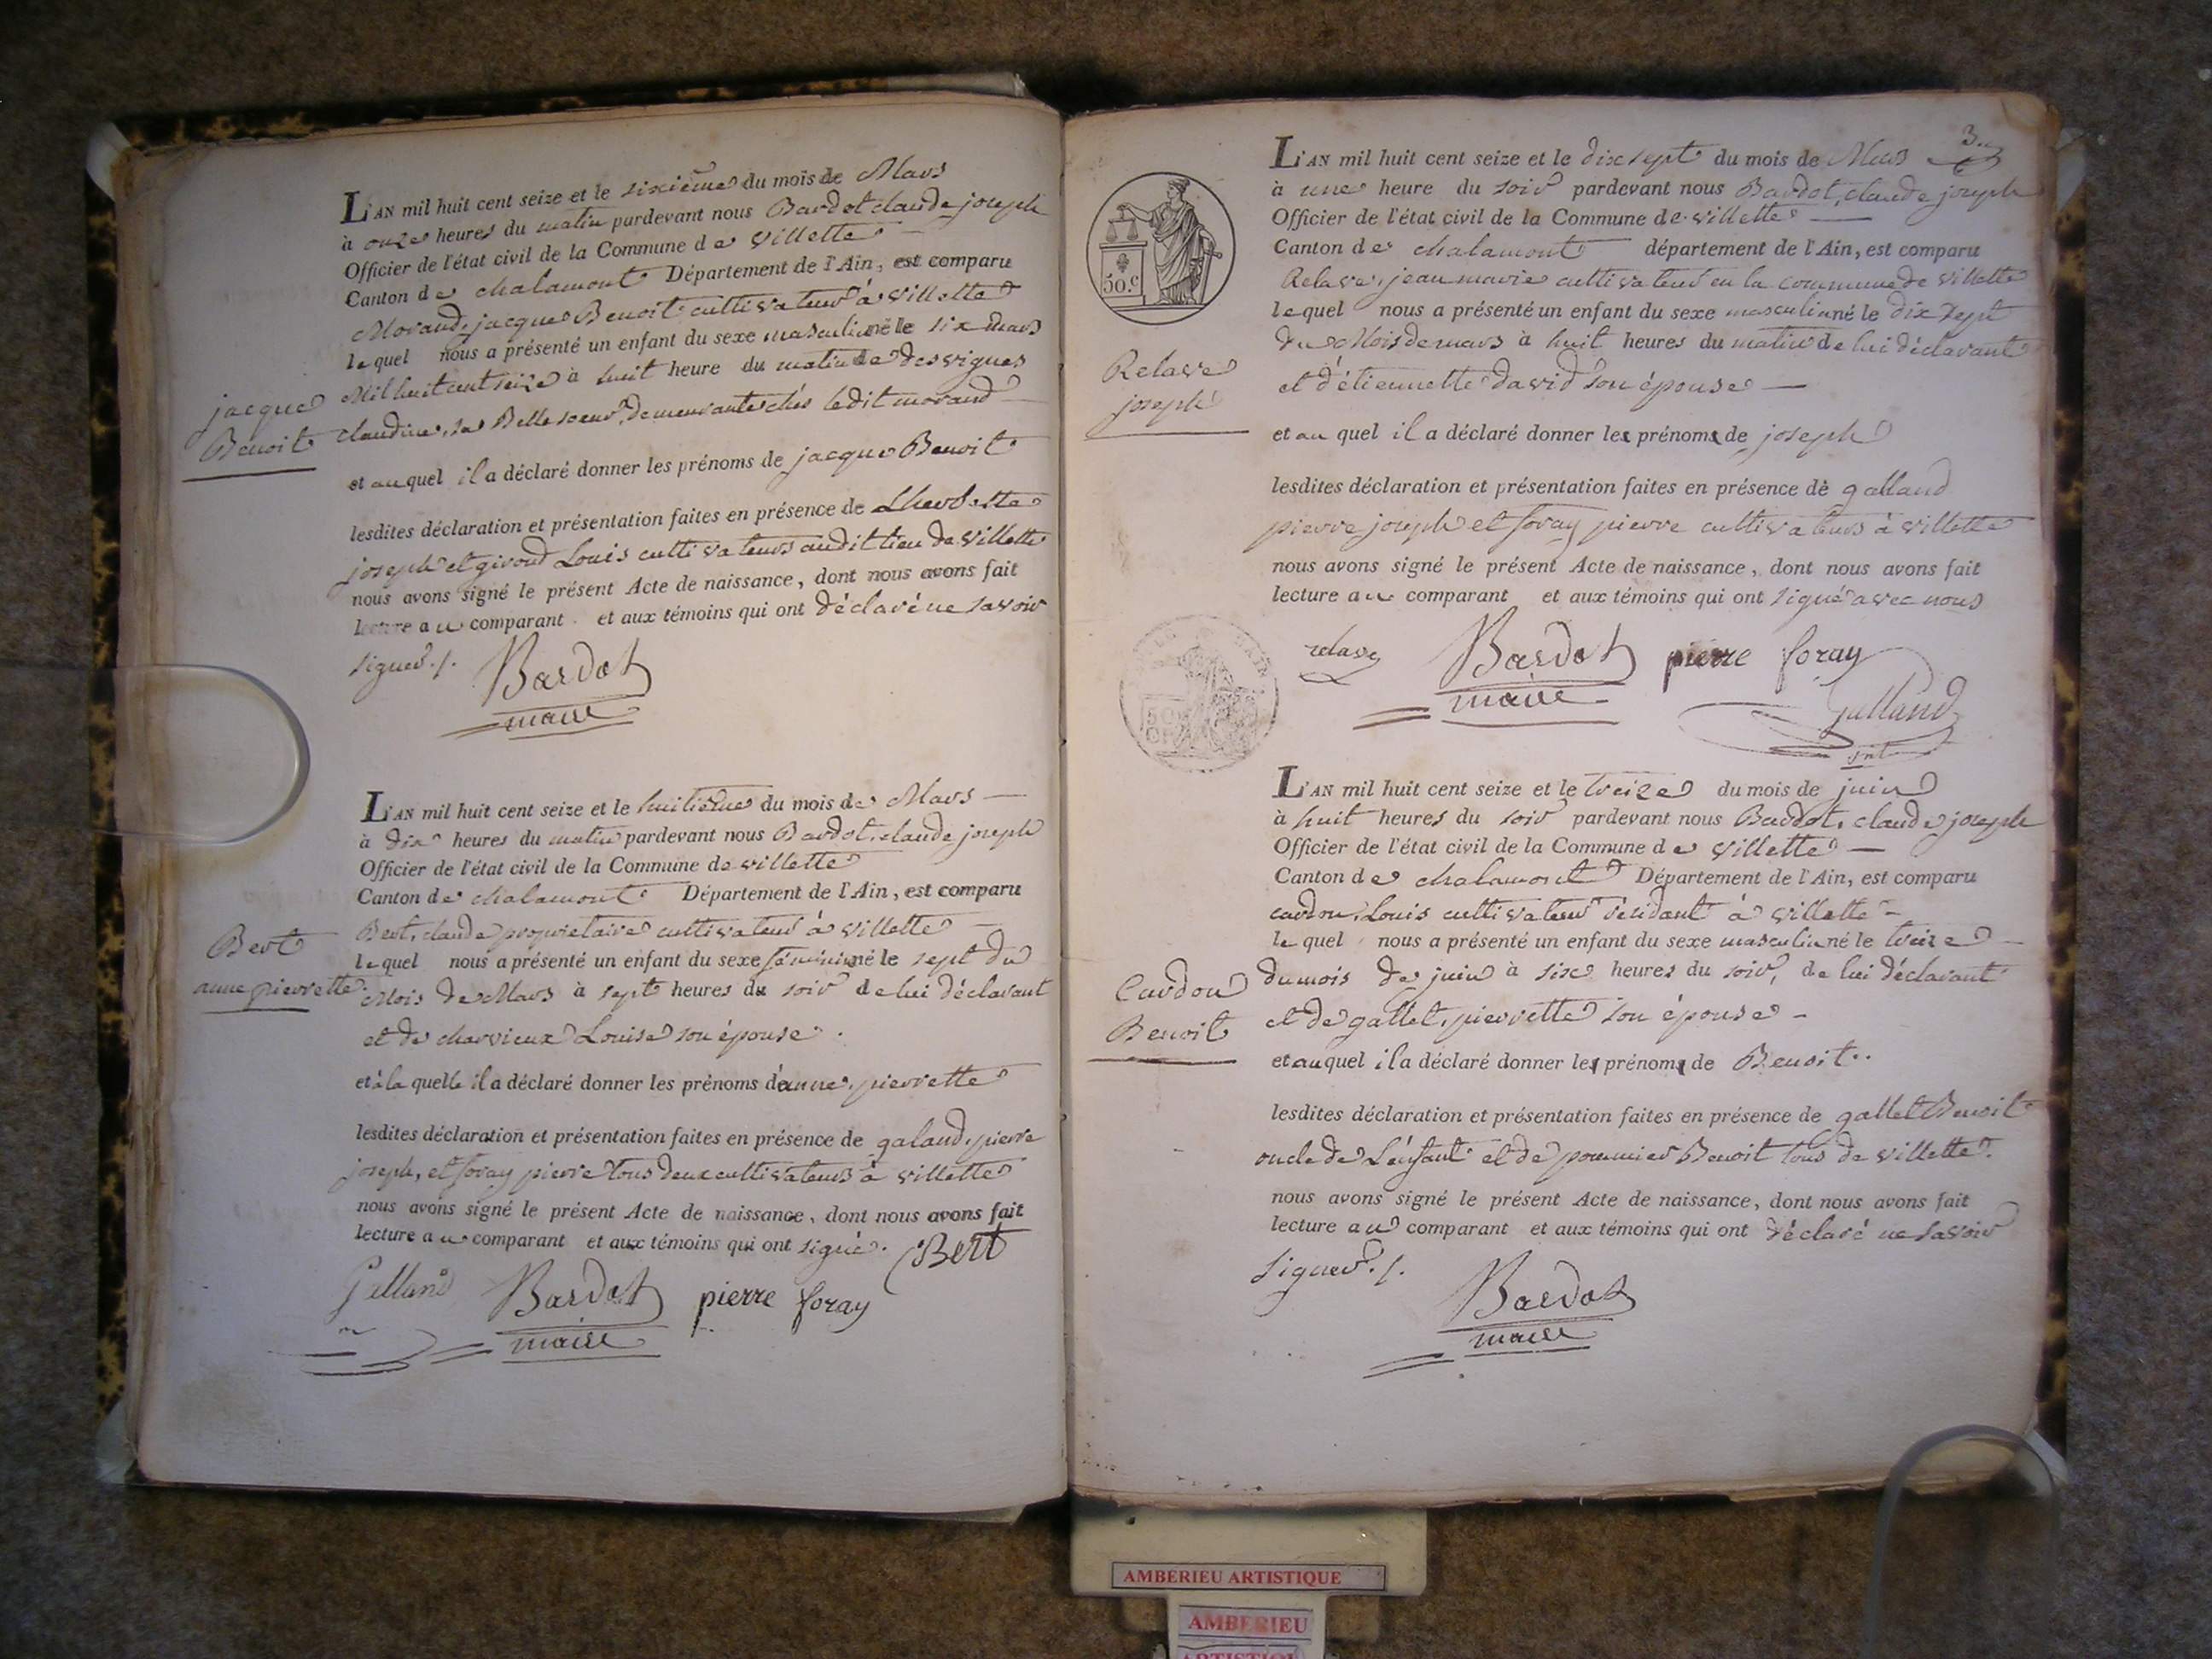 L'AN mil huit cent seize et le sixième du mois de Mars
à onze heures du matin pardevant nous Bardot claude joseph
Officier de l'état civil de la Commune de Villette
Canton de chalamont Département de l'Ain, est comparu
Morand, jacque Benoit cultivateur à villette
lequel nous a présenté un enfant du sexe masculin né le six mars
Mil huit cent seize à huit heure du matin de desvignes
claudine, sa Belle soeur, demeurante chés ledit morand
jacque
Benoit
et auquel il a déclaré donner les prénoms de jacque Benoit
lesdites déclaration et présentation faites en présence de
joseph et giroud Louis cultivateurs audit lieu de villette
nous avons signé le présent Acte de naissance, dont nous avons fait
lecture au comparant et aux témoins qui ont déclaré ne savoir
signer./.
Bardot
maire
L'AN mil huit cent seize et le huitième du mois de Mars
à dix heures du matin pardevant nous Bardot, claude joseph
Officier de l'état civil de la Commune de villette
Canton de chalamont Département de l'Ain, est comparu
Bert, claude propriétaire cultivateur à villette
lequel nous a présenté un enfant du sexe féminin né le sept du
Mois de Mars à sept heures du soir de lui déclarant
et de charvieux Louise son épouse.
Bert
anne pierrette
et à la quelle il a déclaré donner les prénoms d'anne, pierrette
lesdites déclaration et présentation faites en présence de galand, pierre
joseph, et foray pierre tous deux cultivateurs à villette
nous avons signé le présent Acte de naissance, dont nous avons fait
lecture au comparant et aux témoins qui ont signé. Bert
Galland Bardot pierre foray
maire
3
L'AN mil huit cent seize et le dix sept du mois de Mars
à une heure du soir pardevant nous Bardot, claude joseph
Officier de l'état civil de la Commune de villette
Canton de chalamont département de l'Ain, est comparu
Relave, jean marie cultivateur en la commune de villette
lequel nous a présenté un enfant du sexe masculin né le dix sept
du Mois de mars à huit heures du matin de lui déclarant
et d'étiennette david son épouse
50.c
Relave
joseph
et au quel il a déclaré donner les prénoms de joseph
lesdites déclaration et présentation faites en présence de galland
pierre joseph et foray pierre cultivateurs à villette
nous avons signé le présent Acte de naissance, dont nous avons fait
lecture au comparant et aux témoins qui ont signé avec nous
relave Bardot pierre foray
maire Galland
L'AN mil huit cent seize et le treize du mois de juin
à huit heures du soir pardevant nous Bardot, claude joseph
Officier de l'état civil de la Commune de villette
Canton de chalamont Département de l'Ain, est comparu
cardon, Louis cultivateur résidant à villette
lequel nous a présenté un enfant du sexe masculin né le treize
du mois de juin à six heures du soir, de lui déclarant
et de gallet, pierrette son épouse
Cardon
Benoit
et auquel il a déclaré donner les prénoms de Benoit..
lesdites déclaration et présentation faites en présence de gallet Benoit
oncle de L'enfant et de pommier Benoit tous de villette.
nous avons signé le présent Acte de naissance, dont nous avons fait
lecture au comparant et aux témoins qui ont déclaré ne savoir
signer./.
Bardot
maire
AMBERIEU ARTISTIQUE
AMBERIEU
ARTISTIQUE